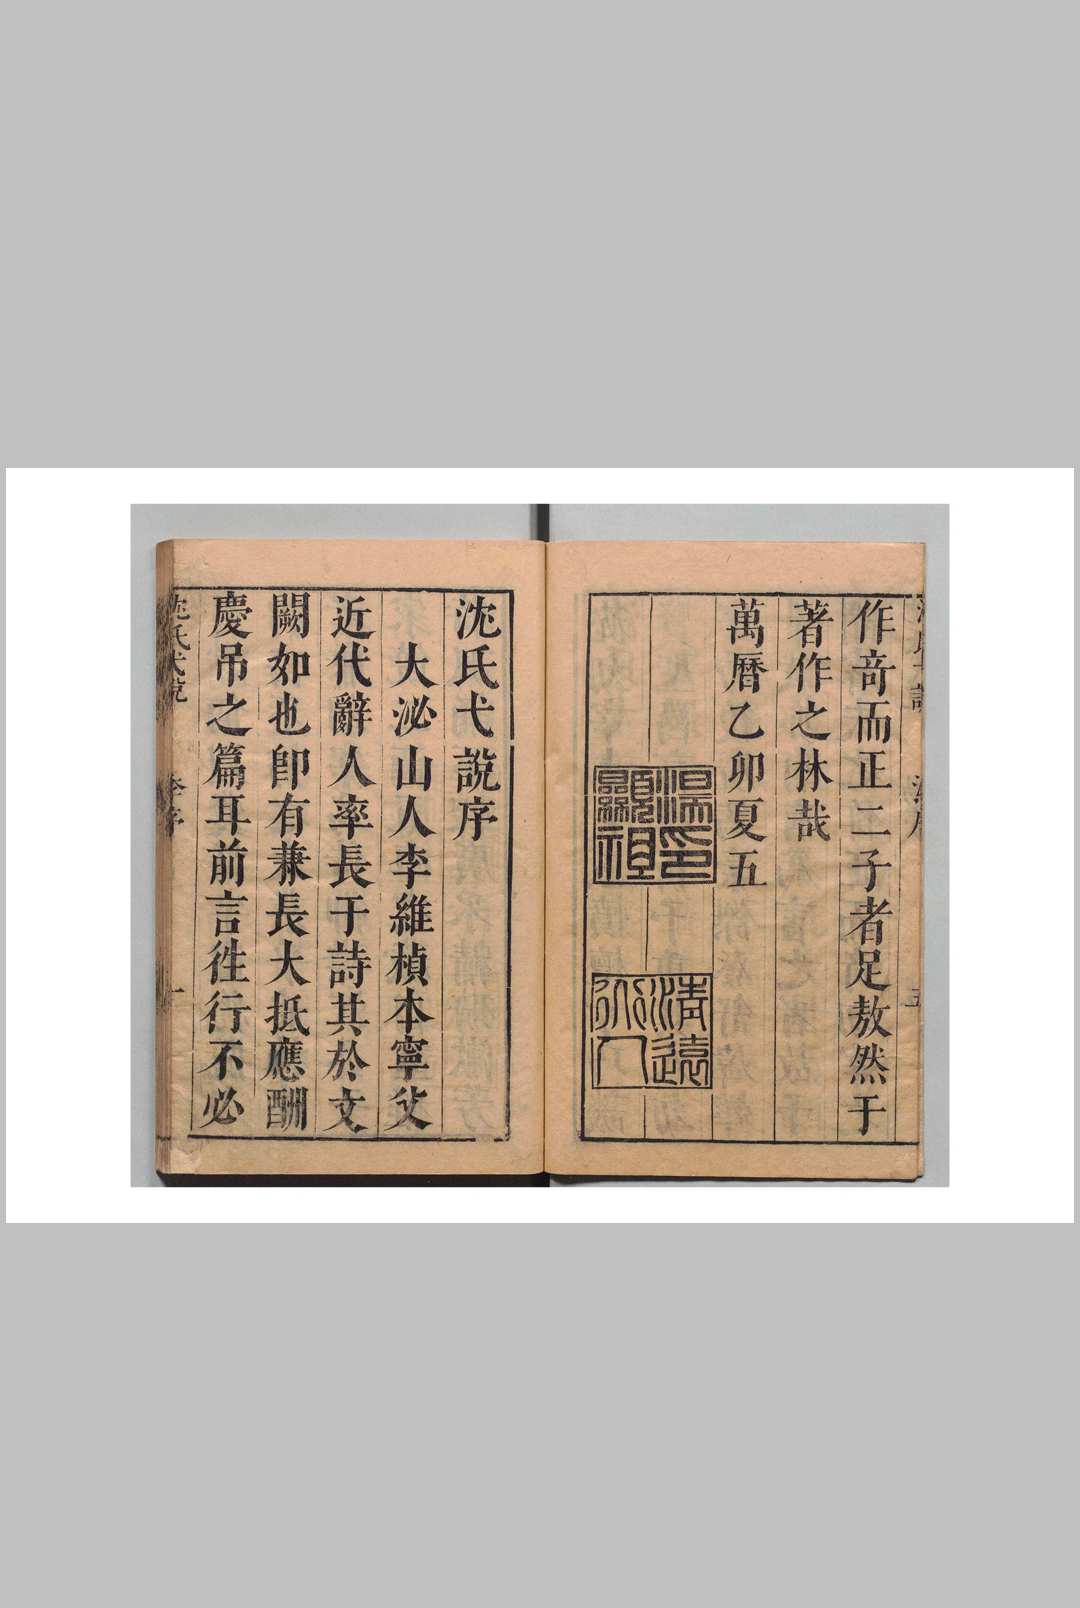 作竒而正二子者足敖然于
著作之林哉
萬曆乙卯夏五
湯印
顯祖
清遠
人
沈氏弋說序
大泌山人李維楨本寧父
近代辭人率長于詩其於文
闕如也即有兼長大抵應酬
慶吊之篇耳前言徃行不必
沈氏弋說 李序 一